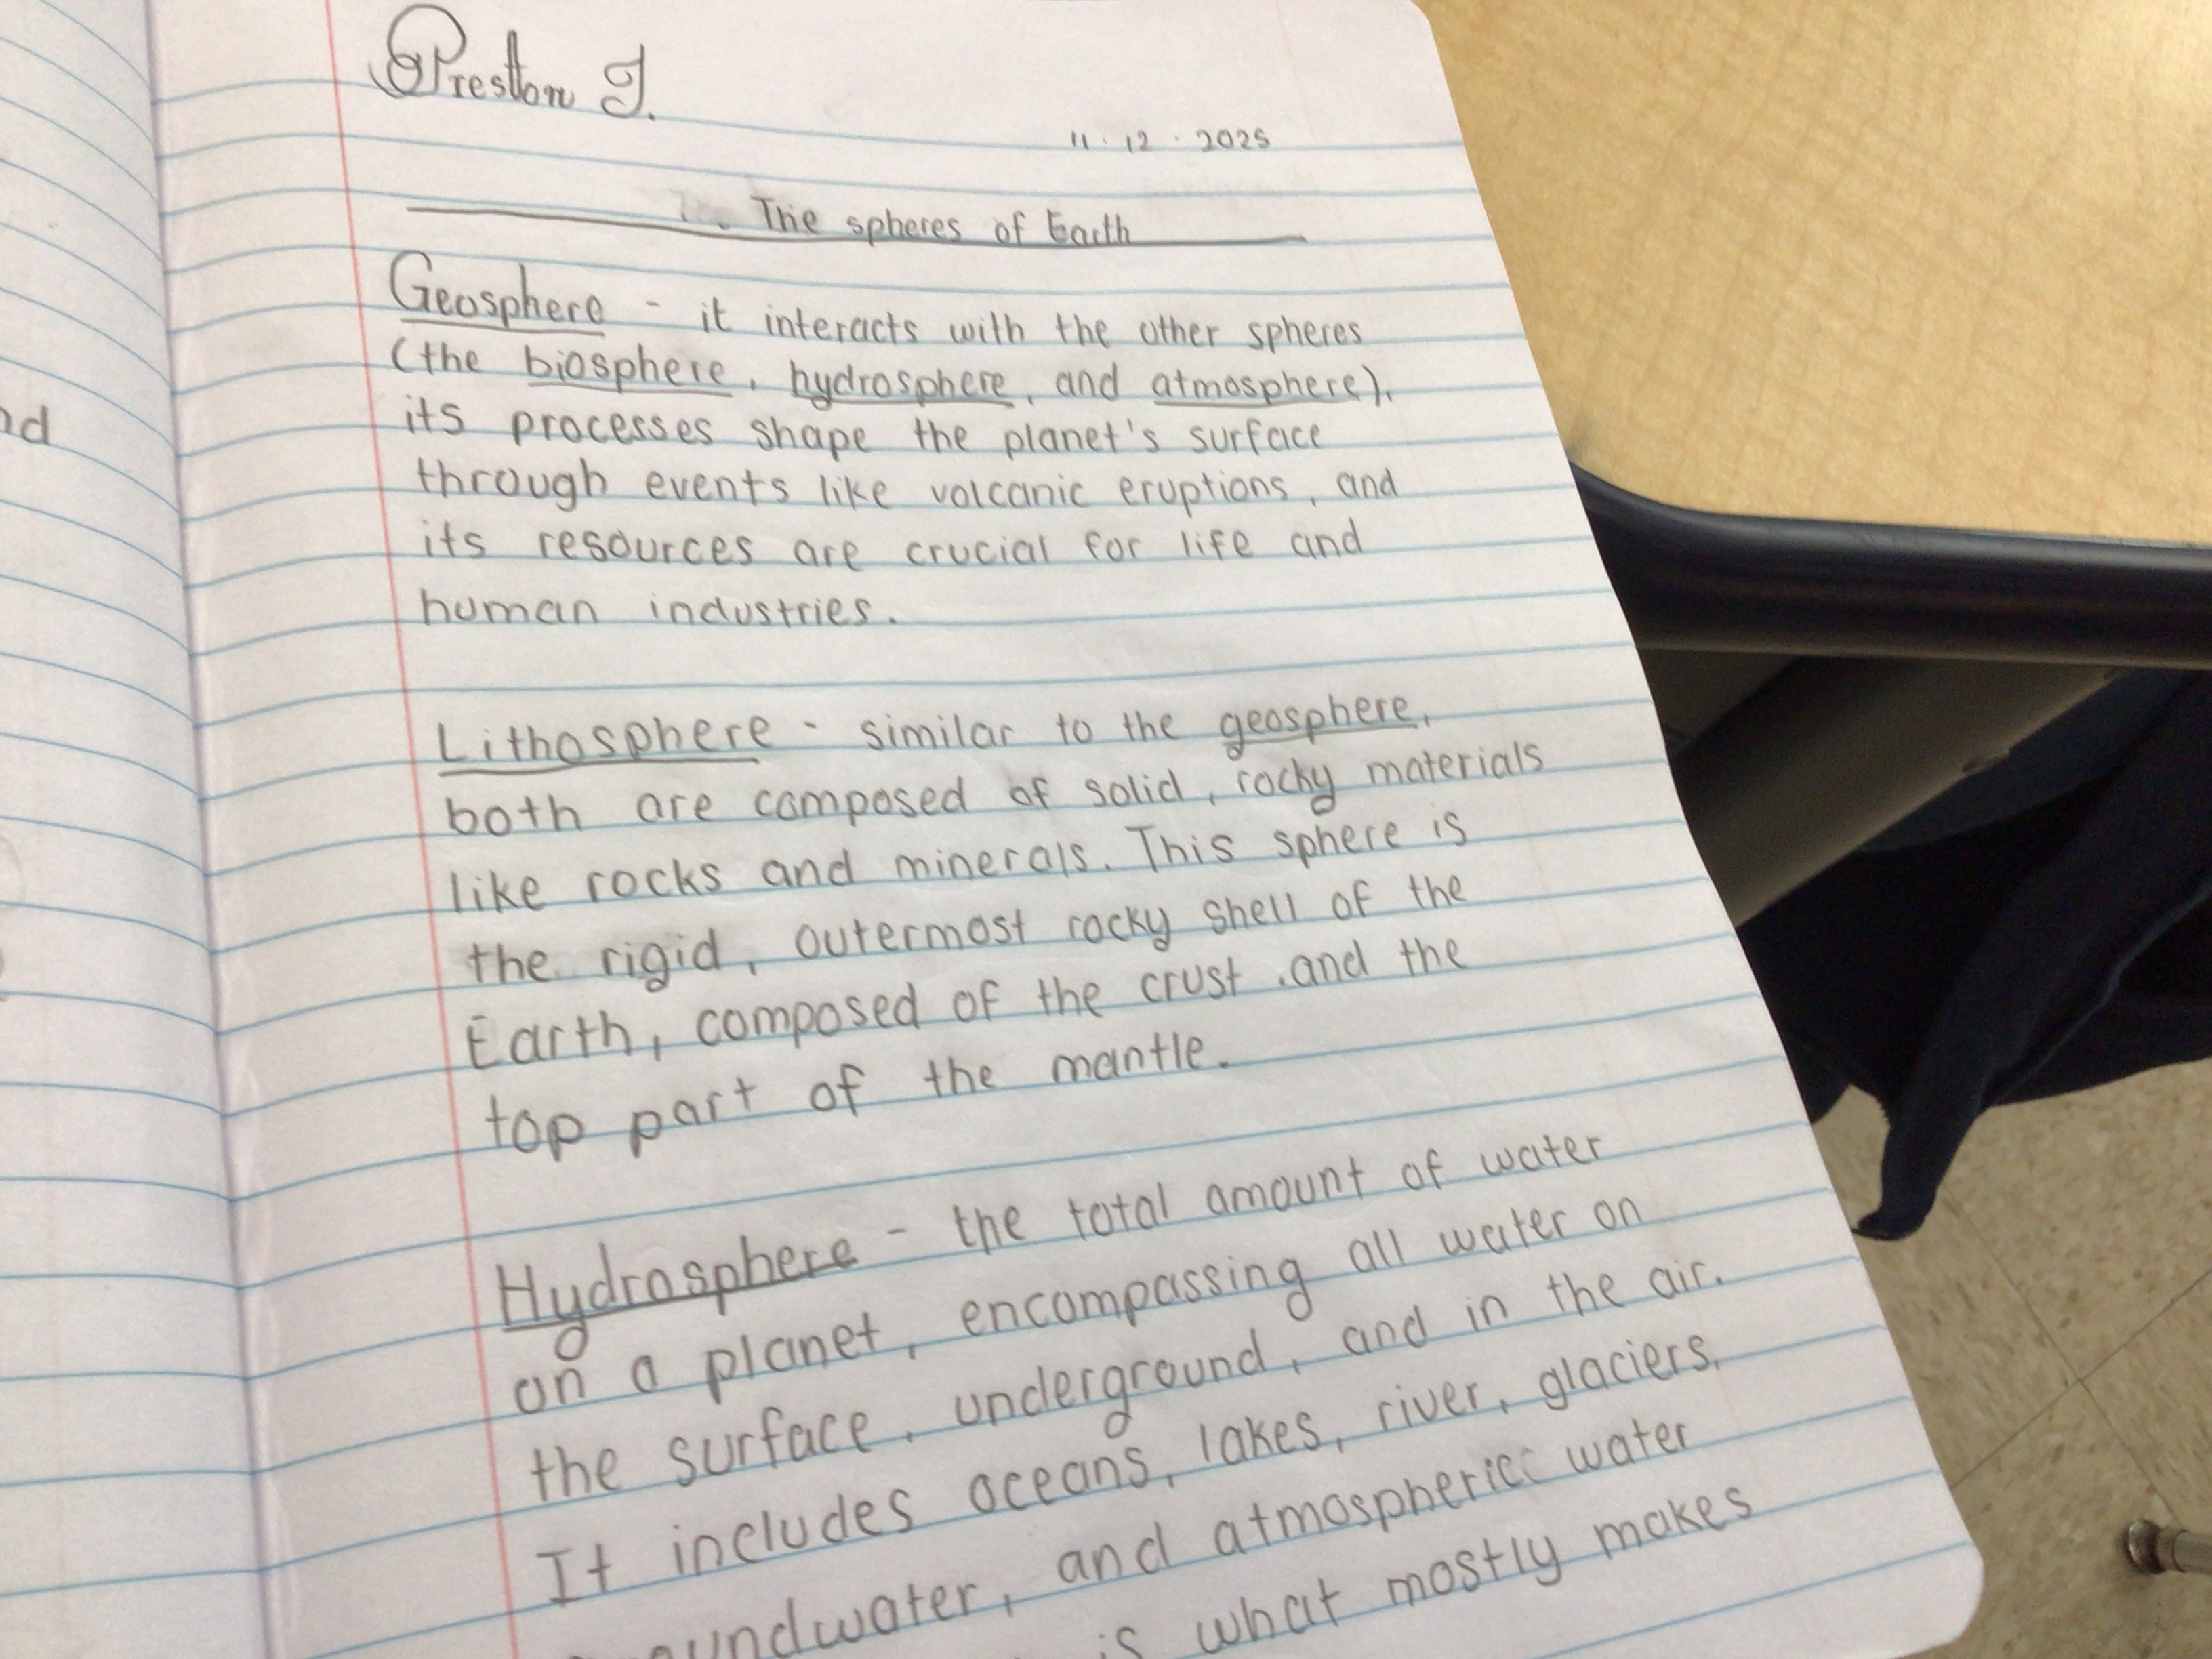 Preston J.
11.12.2025
The spheres of Earth
Geosphere - it interacts with the other spheres
(the biosphere, hydrosphere, and atmosphere),
its processes shape the planet's surface
through events like volcanic eruptions, and
its resources are crucial for life and
human industries.
Lithosphere - similar to the geosphere,
both are composed of solid, rocky materials
like rocks and minerals. This sphere is
the rigid, outermost rocky shell of the
Earth, composed of the crust and the
top part of the mantle.
Hydrosphere - the total amount of water
on a planet, encompassing all water on
the surface, underground, and in the air.
It includes oceans, lakes, river, glaciers,
groundwater, and atmospheric water
is what mostly makes